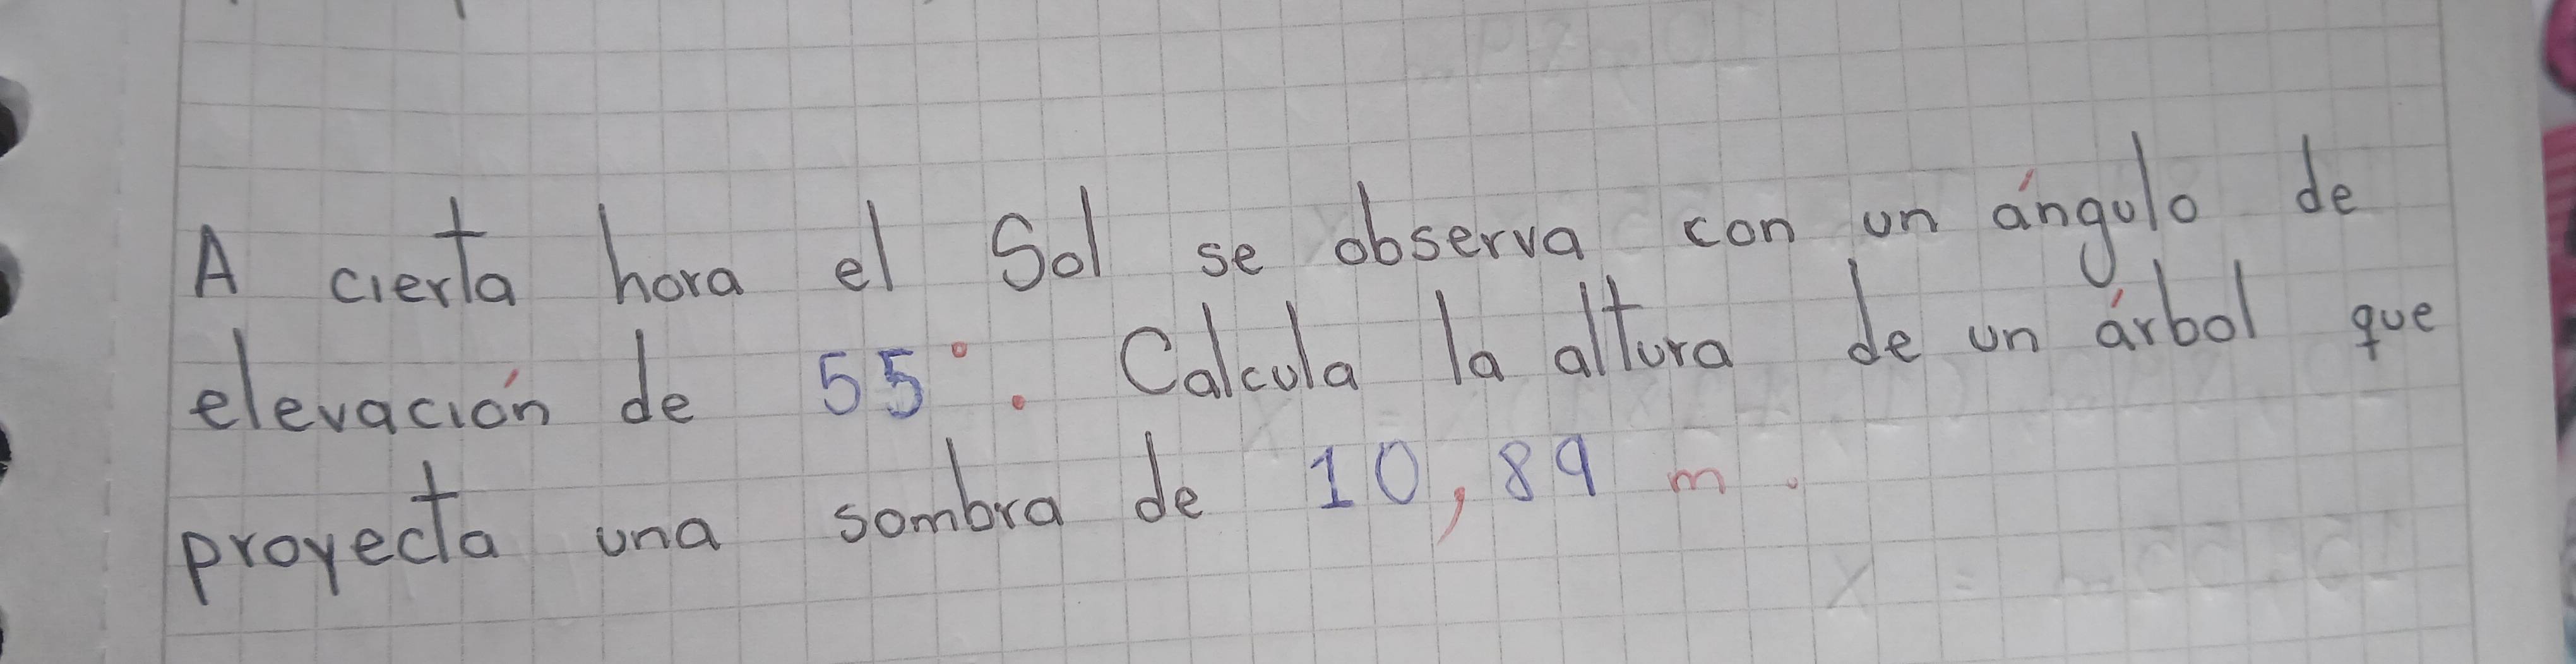 A cierta hora el Sol se observa con un ángulo de
elevación de 55°. Calcula la altura de un árbol que
proyecta una sombra de 10,89 m.